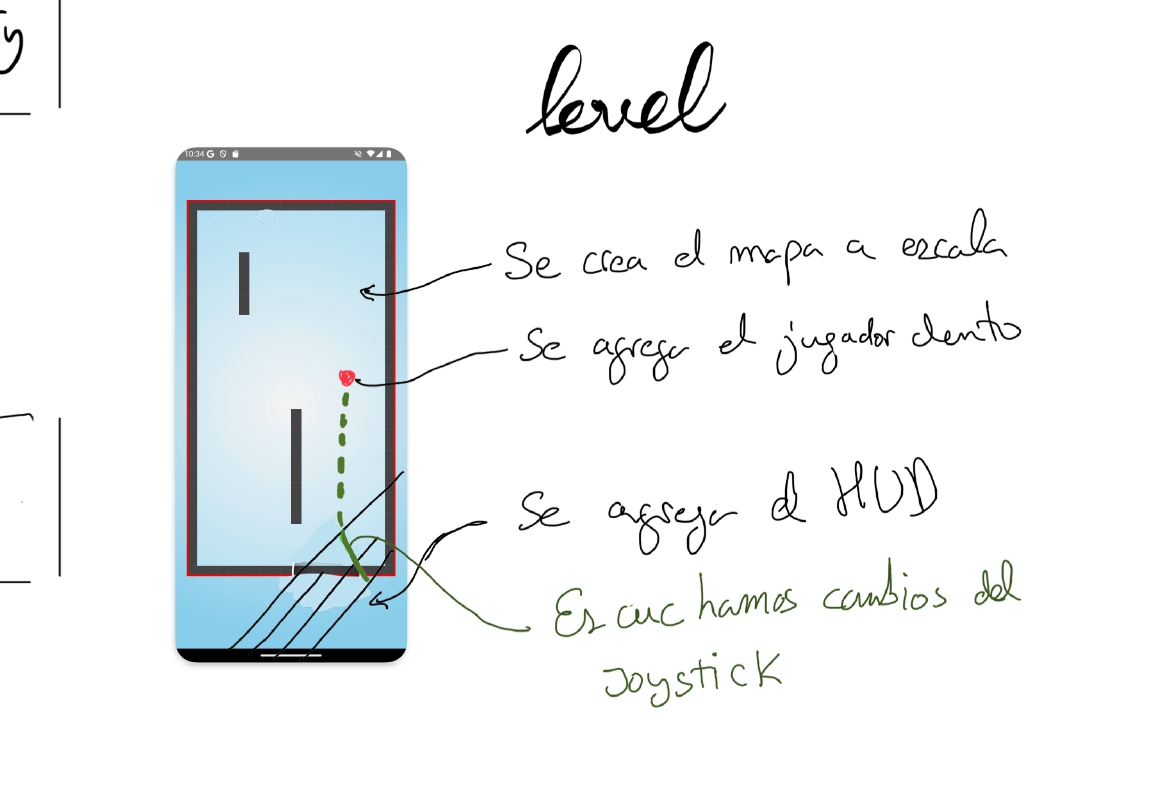 y
level
10:34 G
Se crea el mapa a escala
Se agrega el jugador dento
Se agrega el HUD
Escuchamos cambios del
Joystick